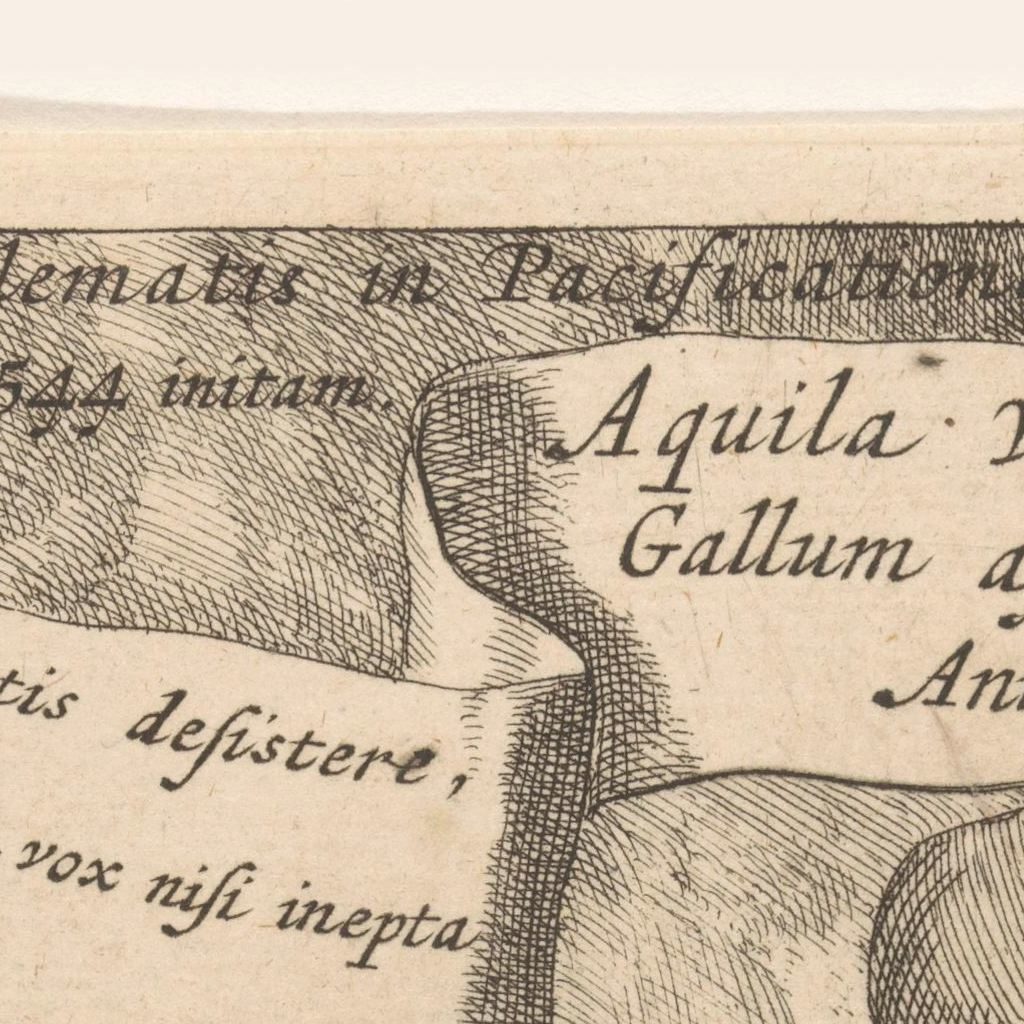 lematis in Pacification
544 initam.
Aquila
Gallum
An
tis deſistere,
vox niſi inepta